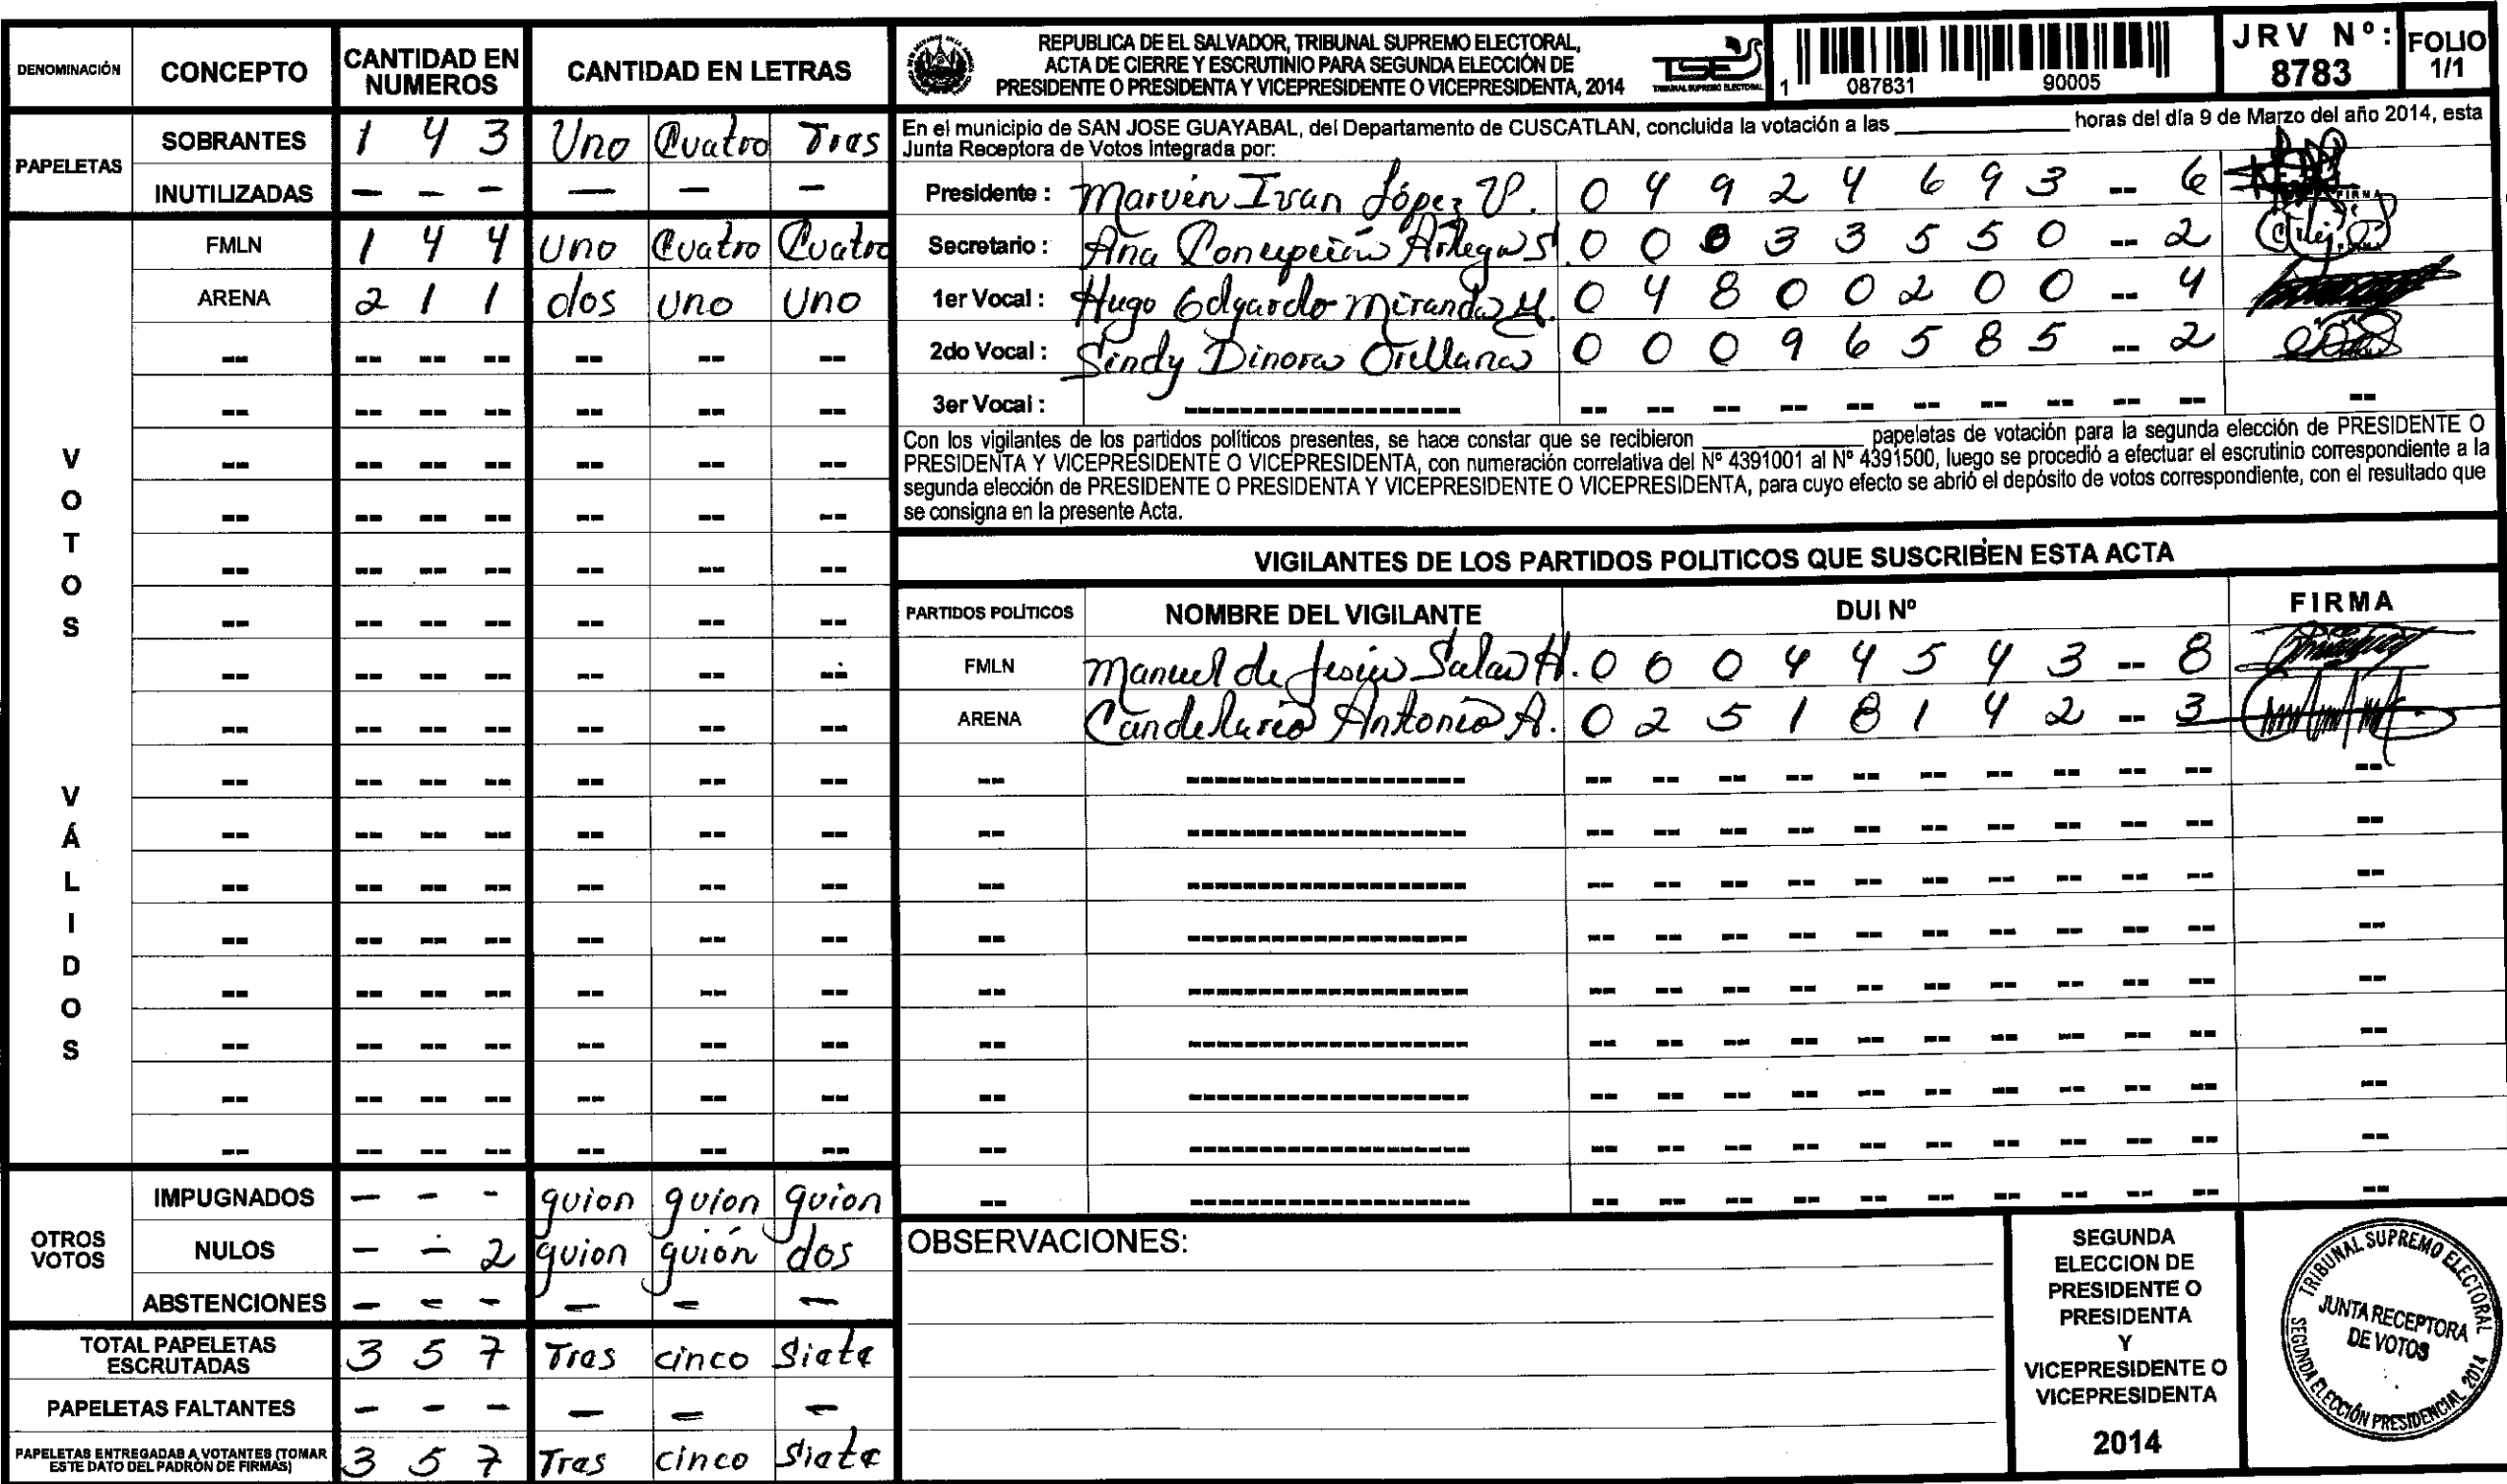 DENOMINACIÓN CONCEPTO CANTIDAD EN NUMEROS CANTIDAD EN LETRAS
PAPELETAS
SOBRANTES 1 4 3 Uno Cuatro Tres
INUTILIZADAS — — — — — —
VOTOS VÁLIDOS
FMLN 1 4 4 Uno Cuatro Cuatro
ARENA 2 1 1 dos uno uno
OTROS VOTOS
IMPUGNADOS — — — guion guion guion
NULOS — — 2 guion guión dos
ABSTENCIONES — — — — — —
TOTAL PAPELETAS ESCRUTADAS 3 5 7 Tres cinco Siete
PAPELETAS FALTANTES — — — — — —
PAPELETAS ENTREGADAS A VOTANTES (TOMAR ESTE DATO DEL PADRÓN DE FIRMAS) 3 5 7 Tres cinco Siete
REPUBLICA DE EL SALVADOR, TRIBUNAL SUPREMO ELECTORAL,
ACTA DE CIERRE Y ESCRUTINIO PARA SEGUNDA ELECCIÓN DE
PRESIDENTE O PRESIDENTA Y VICEPRESIDENTE O VICEPRESIDENTA, 2014
TSE
TRIBUNAL SUPREMO ELECTORAL
1 087831 90005
JRV Nº: 8783
FOLIO 1/1
En el municipio de SAN JOSE GUAYABAL, del Departamento de CUSCATLAN, concluida la votación a las ____________ horas del día 9 de Marzo del año 2014, esta
Junta Receptora de Votos integrada por:
Presidente : Marvin Ivan López V. 0 4 9 2 4 6 9 3 -- 6
FIRMA
Secretario : Ana Concepción Artega S. 0 0 8 3 3 5 5 0 -- 2
1er Vocal : Hugo Edgardo Miranda M. 0 4 8 0 0 2 0 0 -- 4
2do Vocal : Sindy Dinora Orellana 0 0 0 9 6 5 8 5 -- 2
3er Vocal :
Con los vigilantes de los partidos políticos presentes, se hace constar que se recibieron ____________ papeletas de votación para la segunda elección de PRESIDENTE O
PRESIDENTA Y VICEPRESIDENTE O VICEPRESIDENTA, con numeración correlativa del Nº 4391001 al Nº 4391500, luego se procedió a efectuar el escrutinio correspondiente a la
segunda elección de PRESIDENTE O PRESIDENTA Y VICEPRESIDENTE O VICEPRESIDENTA, para cuyo efecto se abrió el depósito de votos correspondiente, con el resultado que
se consigna en la presente Acta.
VIGILANTES DE LOS PARTIDOS POLITICOS QUE SUSCRIBEN ESTA ACTA
PARTIDOS POLÍTICOS NOMBRE DEL VIGILANTE DUI Nº FIRMA
FMLN Manuel de Jesús Salas H. 0 0 0 4 4 5 4 3 -- 8
ARENA Candelario Antonio A. 0 2 5 1 8 1 4 2 -- 3
OBSERVACIONES:
SEGUNDA
ELECCION DE
PRESIDENTE O
PRESIDENTA
Y
VICEPRESIDENTE O
VICEPRESIDENTA
2014
TRIBUNAL SUPREMO ELECTORAL
JUNTA RECEPTORA
DE VOTOS
SEGUNDA ELECCIÓN PRESIDENCIAL 2014